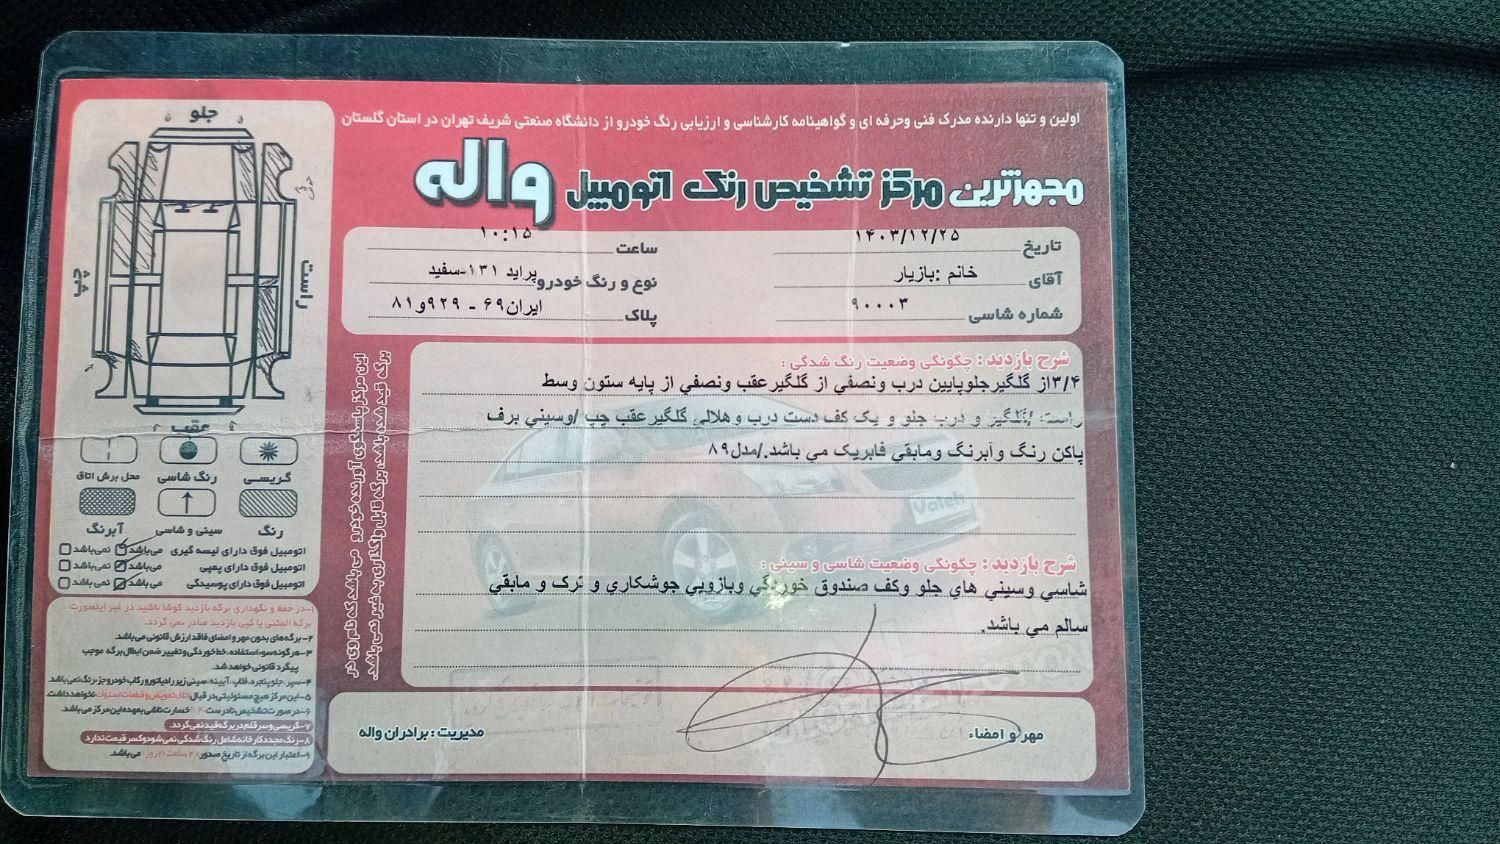 اولین و تنها دارنده مدرک فنی وحرفه ای و گواهینامه کارشناسی و ارزیابی رنگ خودرو از دانشگاه صنعتی شریف تهران در استان گلستان
مجهزترین مرکز تشخیص رنگ اتومبیل واله
تاریخ ۱۴۰۳/۱۲/۲۵
ساعت ۱۰:۱۵
آقای خانم :بازیار
نوع و رنگ خودرو پراید ۱۳۱-سفید
شماره شاسی ۹۰۰۰۳
پلاک ایران۶۹ - ۹۲۹و۸۱
شرح بازدید : چگونگی وضعیت رنگ شدگی :
۳/۴از گلگیرجلوپایین درب ونصفي از گلگیرعقب ونصفي از پایه ستون وسط
راست /گلگیر و درب جلو و یک کف دست درب وهلالي گلگیرعقب چپ /وسیني برف
پاکن رنگ وآبرنگ ومابقي فابریک مي باشد./مدل۸۹
Valeh
شرح بازدید : چگونگی وضعیت شاسی و سینی :
شاسي وسیني هاي جلو وکف صندوق خوردگي وبازویي جوشکاري و ترک و مابقي
سالم مي باشد.
مهر و امضاء
مدیریت : برادران واله
این مرکز پاسخگوی آورنده خودرو می باشد که نام وی در
برگه قید شده باشد. برگه قابل واگذاری به غیر نمی باشد.
جلو
چپ
راست
عقب
گریسی
رنگ شاسی
محل برش اتاق
رنگ
سینی و شاسی
آبرنگ
اتومبیل فوق دارای لیسه گیری می‌باشد نمی‌باشد
اتومبیل فوق دارای پمپی می‌باشد نمی‌باشد
اتومبیل فوق دارای پوسیدگی می‌باشد نمی‌باشد
۱-در حفظ و نگهداری برگه بازدید کوشا باشید در غیر اینصورت
برگه المثنی یا کپی بازدید صادر نمی گردد.
۲- برگه‌های بدون مهر و امضای فاقد ارزش قانونی می‌باشد.
۳-هرگونه سوء استفاده، خط خوردگی و تغییر ضمن ابطال برگه موجب
پیگرد قانونی خواهد شد.
۴-سپر، جلو پنجره، قلاب، آیینه، سینی زیر رادیاتور و رکاب خودرو جزء رنگ نمی‌باشد.
۵-این مرکز هیچ مسئولیتی در قبال اتاق تعویض و قطعات استوک نخواهد داشت.
۶-در صورت تشخیص نادرست خسارت ناشی بعهده این مرکز می باشد.
۷-گریسی و سر قلم در برگه قید نمی گردد.
۸-رنگ مجدد کارخانه شامل رنگ شدگی نمی شود و کسر قیمت ندارد
۹-اعتبار این برگه از تاریخ صدور ۴۸ ساعت (۲روز) می باشد.